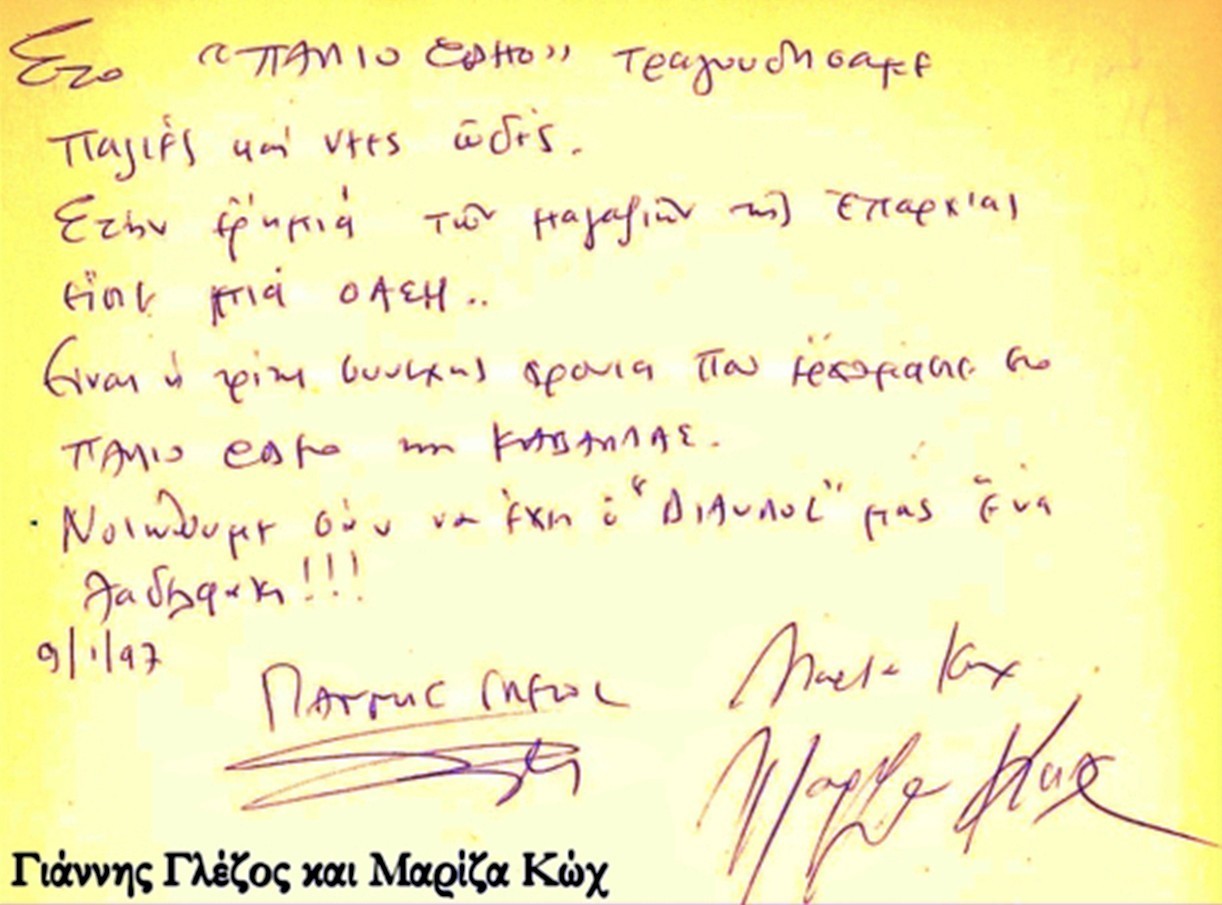 Στο «ΠΑΛΙΟ ΕΔΜΟ» τραγουδήσαμε
παλιές καί νέες ὠδές.
Στήν ἐρημιά τῶν μαγαζιῶν τῆς Ἐπαρχίας
εἶστε μιά ΟΑΣΗ..
Είναι ἡ τρίτη συνεχής χρονιά που ἐρχόμαστε στο
ΠΑΛΙΟ της ΚΑΒΑΛΛΑΣ.
Νοιώθουμε σάν να ἔχει ὁ "ΔΙΑΥΛΟΣ" μας ἕνα
λαδεφάκι!!!
9/1/97
ΓΙΑΝΝΗΣ ΓΛΕΖΟΣ Μαρίζα Κωχ
Μαρίζα Κωχ
Γιάννης Γλέζος και Μαρίζα Κώχ